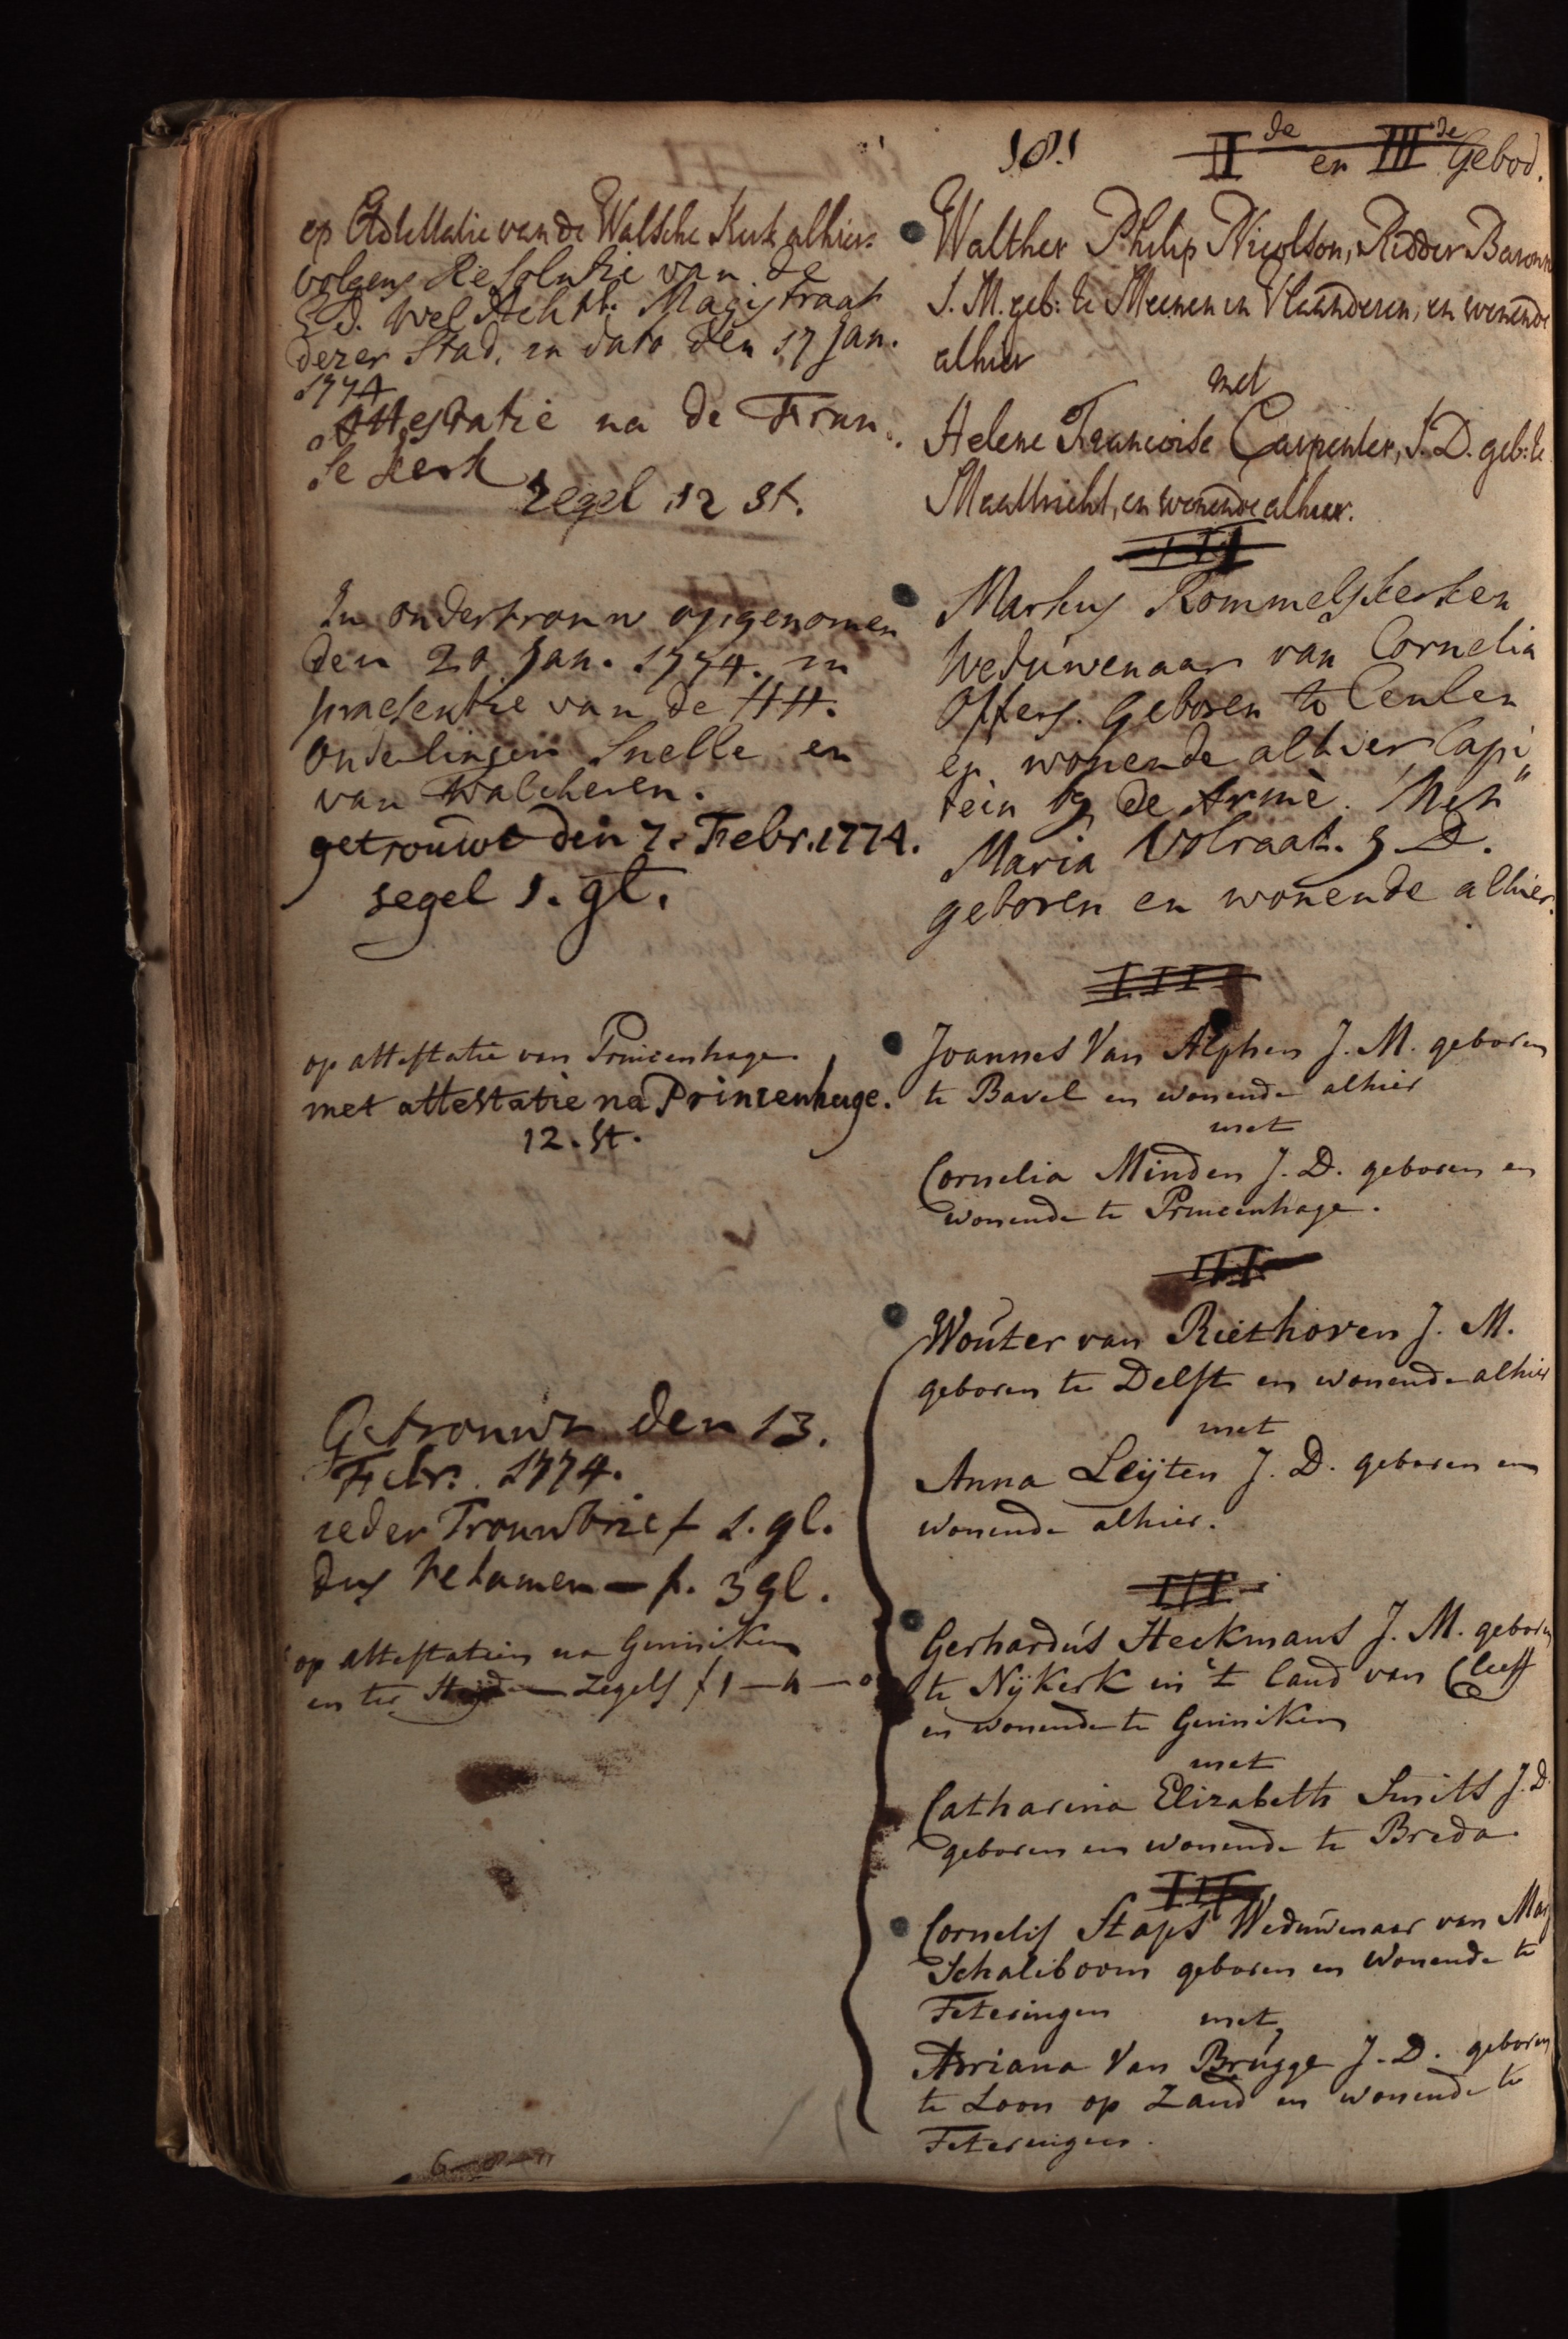 181 IIde en IIIde Gebod.
op Attestatie van de Walsche Kerk alhier
volgens Resolutie van de
Ed. Wel Achtb. Magistraat
dezer Stad, in dato den 17 Jan.
1774
Attestatie na de Fran
se kerk
Zegel 12 St.
Walther Philip Nicolson, Ridder Baronn
J. M. geb: te Meenen in Vlaanderen, en wonende
alhier
met
Helene Francoise Carpenter, J. D. geb: te
Maastricht, en wonende alhier.
III
In ondertrouw opgenomen
den 20 Jan. 1774. in
praesentie van de HH.
Ouderlingen Snelle en
van Walcheren.
getrouwt den 7. Febr. 1774.
segel 1. gl.
Markus Rommelskerken
Weduwenaar van Cornelia
Offers. Geboren te Ceulen
en wonende alhier Capi
tein by de Armè. Met
Maria Volraat. J. D.
geboren en wonende alhier.
III
op attestatie van Princenhage
met attestatie na Princenhage.
12. St.
Joannes Van Alphen J. M. geboren
te Bavel en wonende alhier
met
Cornelia Minden J. D. geboren en
wonende te Princenhage.
III
Wouter van Riethoven J. M.
geboren te Delft en wonende alhier
met
Anna Leijten J. D. geboren en
wonende alhier.
Getrouwt den 13.
Febr. 1774.
ieder Trouwbrief 1. gl.
dus te samen - f. 3 gl.
III
op attestatien na Ginniken
en ter Heijde - Zegels f 1 - 4 - 0
Gerhardus Heekmans J. M. geboren
te Nijkerk in 't land van Cleeff
en wonende te Ginniken
met
Catharina Elizabeth Smits J. D.
geboren en wonende te Breda.
III
Cornelis Staps Weduwenaar van Mar
Schaliboom geboren en Wonende te
Feteringen met
Adriana Van Brugge J. D. geboren
te Loon op Zand en wonende te
Feteringen.